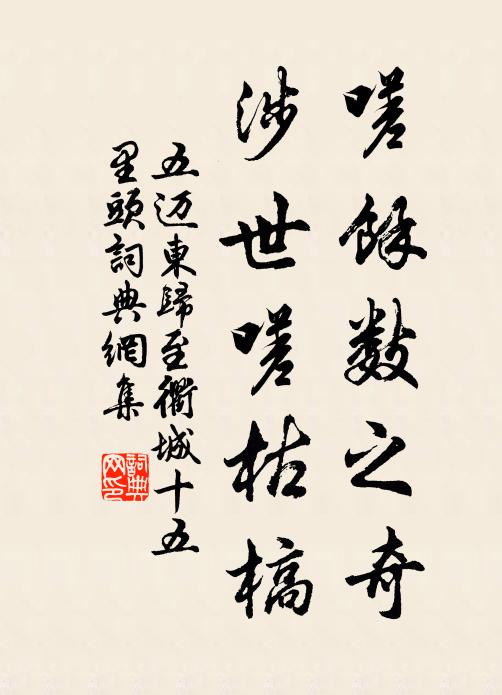 嗟餘數之奇
涉世嗟枯槁
五迈東歸至衢城十五
里頭詞典網集
詞典
网印